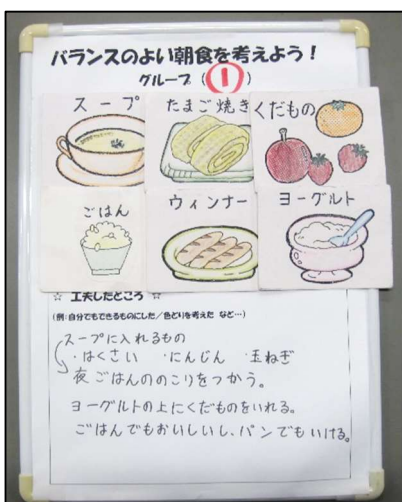 バランスのよい朝食を考えよう！
グループ（①）
スープ
たまご焼き
くだもの
ごはん
ウィンナー
ヨーグルト
☆ 工夫したところ ☆
(例：自分でもできるものにした／色どりを考えた など…)
スープに入れるもの
・はくさい ・にんじん ・玉ねぎ
夜ごはんののこりをつかう。
ヨーグルトの上にくだものをいれる。
ごはんでもおいしいし、パンでもいける。